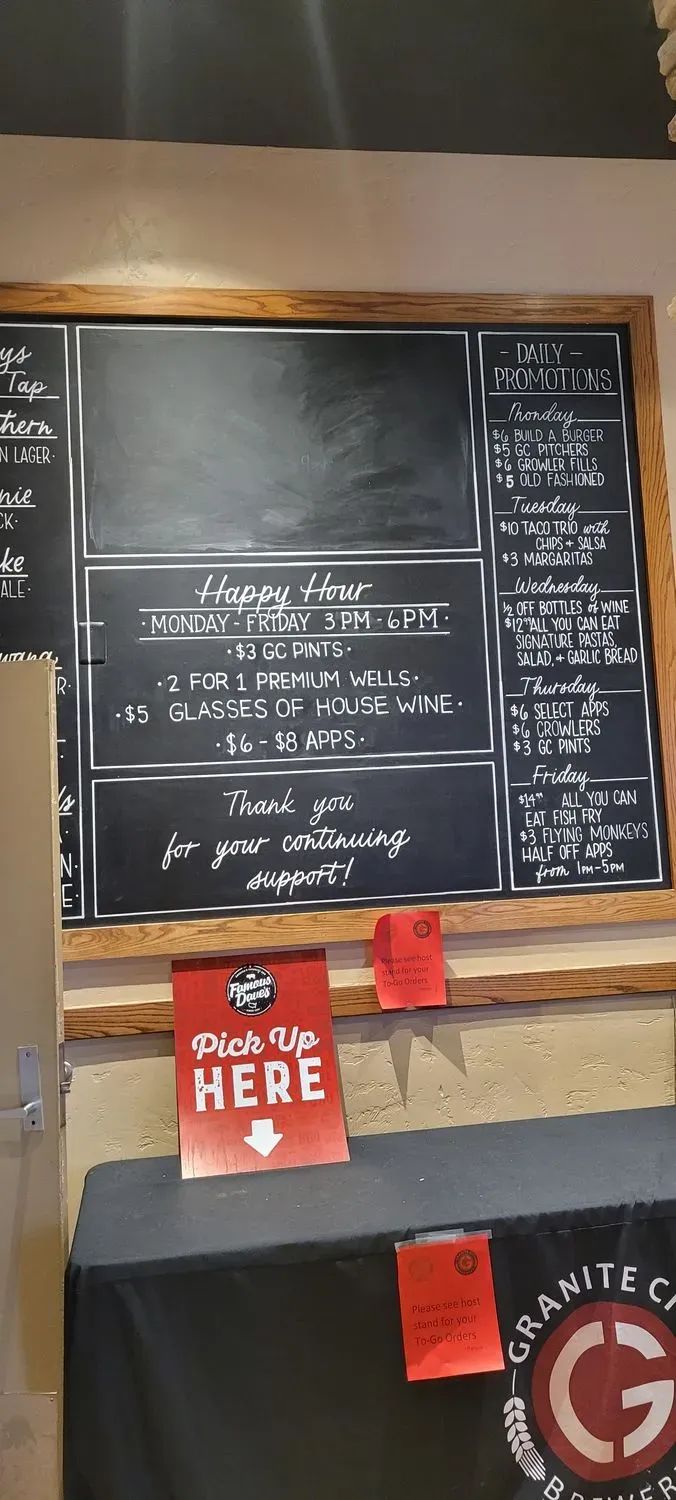 ys
Tap
thern
N LAGER·
nie
CK·
ke
ALE·
wana
R·
ls
N·
E·
Happy Hour
·MONDAY - FRIDAY 3PM - 6PM·
·$3 GC PINTS·
·2 FOR 1 PREMIUM WELLS·
·$5 GLASSES OF HOUSE WINE·
·$6 - $8 APPS·
Thank you
for your continuing
support!
- DAILY -
PROMOTIONS
Monday
$6 BUILD A BURGER
$5 GC PITCHERS
$6 GROWLER FILLS
$5 OLD FASHIONED
Tuesday
$10 TACO TRIO with
CHIPS + SALSA
$3 MARGARITAS
Wednesday
½ OFF BOTTLES of WINE
$12⁹⁹ ALL YOU CAN EAT
SIGNATURE PASTAS,
SALAD, + GARLIC BREAD
Thursday
$6 SELECT APPS
$6 CROWLERS
$3 GC PINTS
Friday
$14⁹⁹ ALL YOU CAN
EAT FISH FRY
$3 FLYING MONKEYS
HALF OFF APPS
from 1PM-5PM
Please see host
stand for your
To-Go Orders
Famous
Dave's
Pick Up
HERE
Please see host
stand for your
To-Go Orders
GRANITE CI
G
BREWER